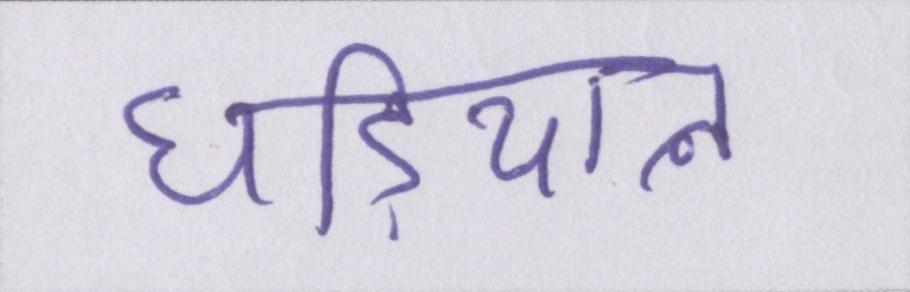 घड़ियाल